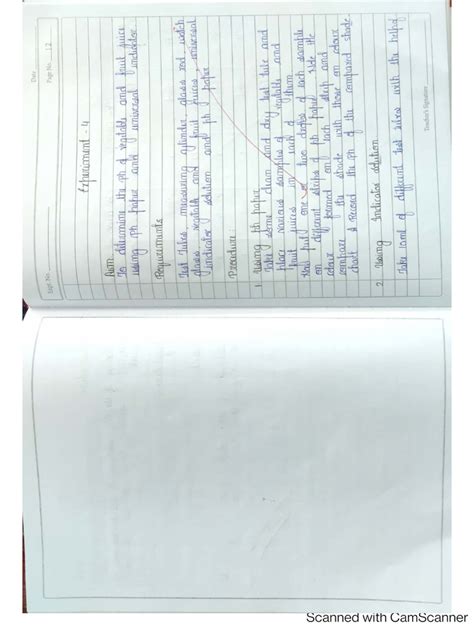 Date
Expt. No.
Page No. 12
Experiment - 4
Aim
To determine the ph of vegetable and fruit juice
using ph paper and universal indicator
Requirements
Test Tubes, measuring cylinder, glass rod, watch
glass, vegetable and fruit juices, universal
indicator solution and ph paper
Procedure
1. Using ph paper
Take some clean and dry test tube and
Place various samples of vegetable and
fruit juices in each of them
Now put one or two drops of each sample
on different strips of ph paper. Note the
colour formed on each strip and
compare the shade with those on colour
chart & Record the ph of the compared shade.
2. Using Indicator solution
Take 10ml of different test with the help of
Teacher's Signature
Scanned with CamScanner